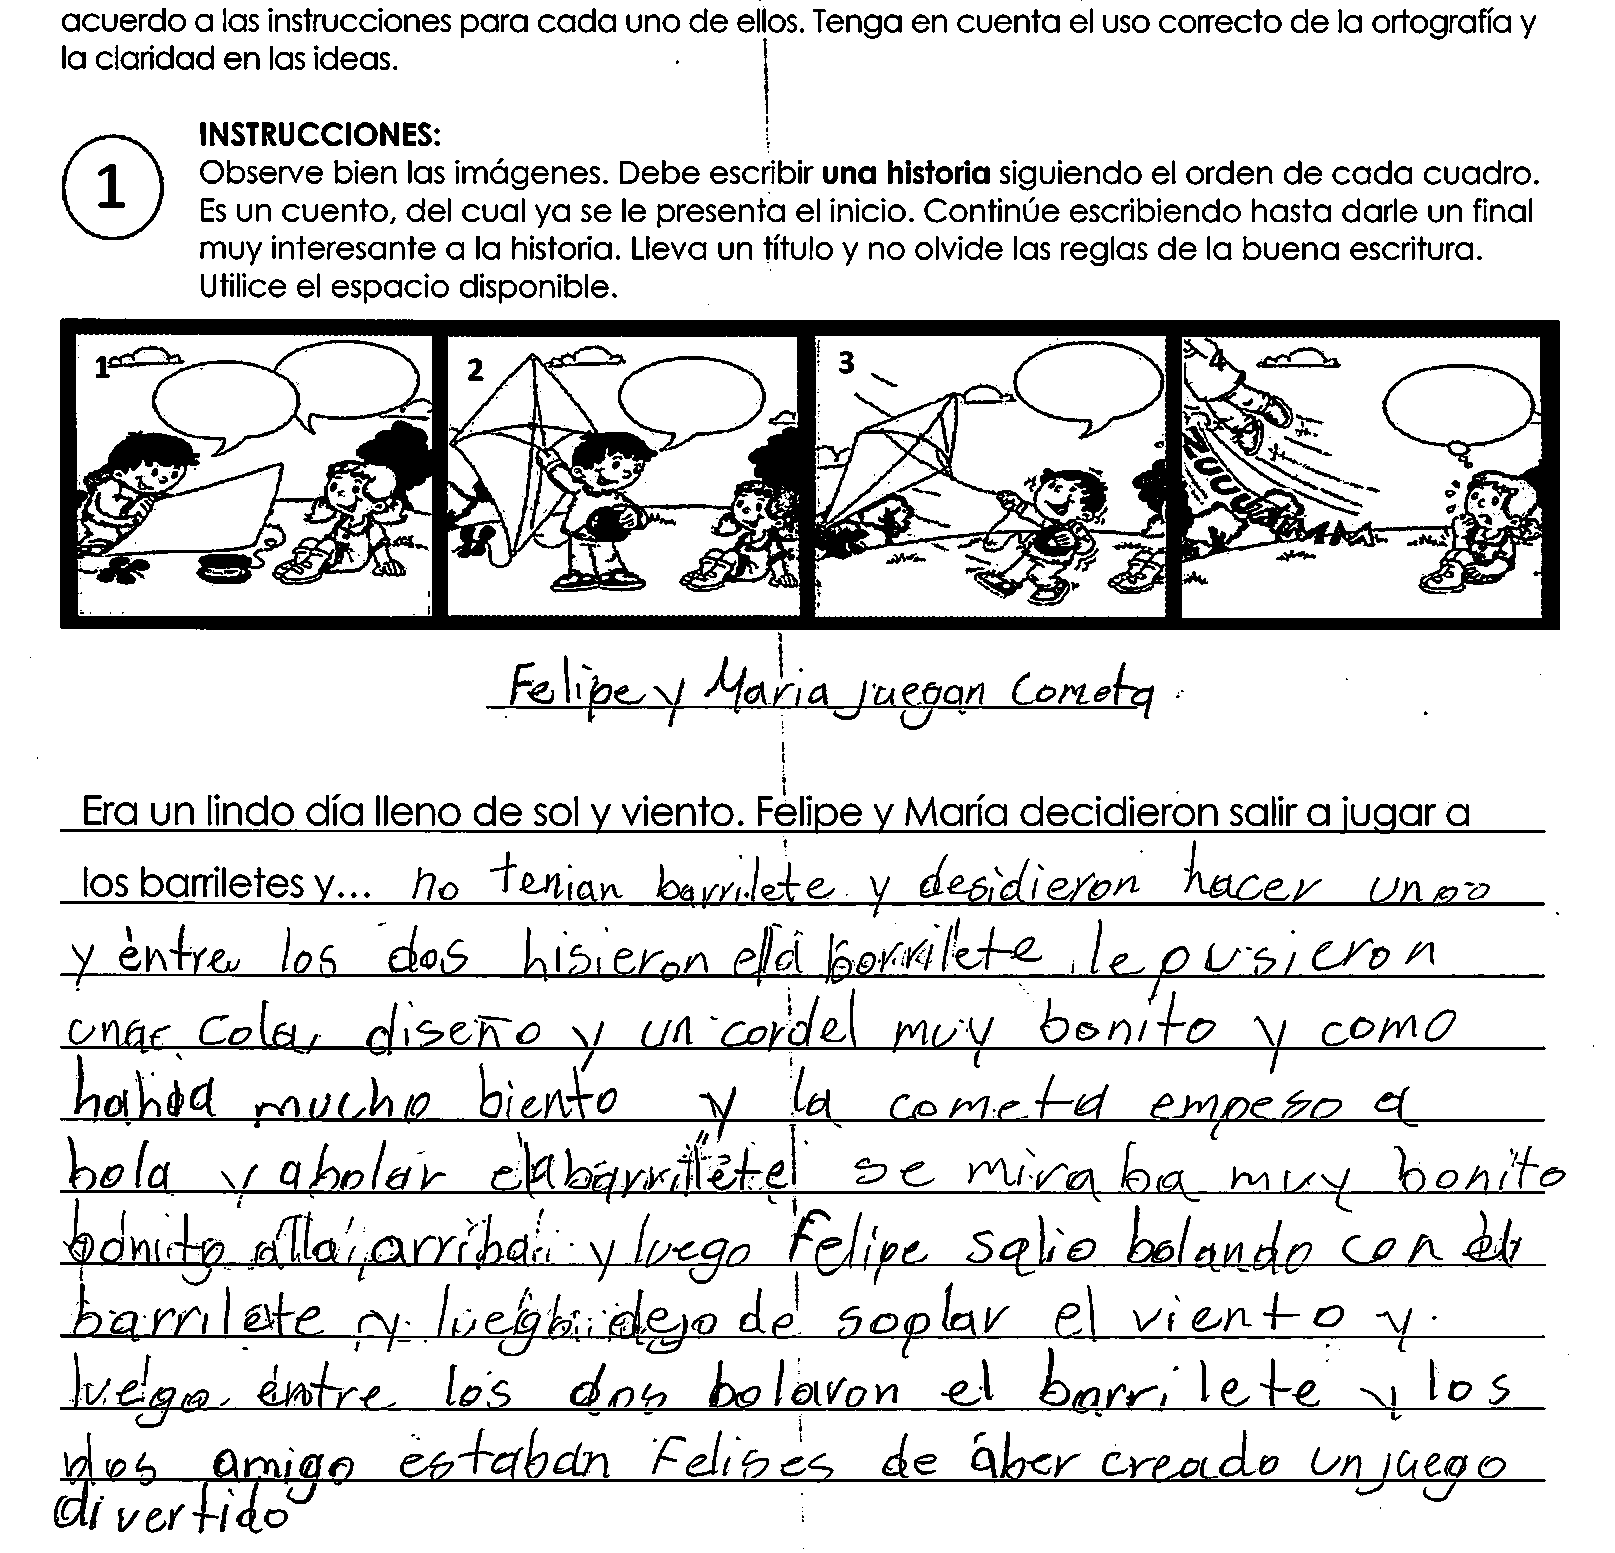 acuerdo a las instrucciones para cada uno de ellos. Tenga en cuenta el uso correcto de la ortografía y
la claridad en las ideas.
1
INSTRUCCIONES:
Observe bien las imágenes. Debe escribir una historia siguiendo el orden de cada cuadro.
Es un cuento, del cual ya se le presenta el inicio. Continúe escribiendo hasta darle un final
muy interesante a la historia. Lleva un título y no olvide las reglas de la buena escritura.
Utilice el espacio disponible.
1 2 3 4
Felipe y Maria juegan Cometa
Era un lindo día lleno de sol y viento. Felipe y María decidieron salir a jugar a
los barriletes y... no tenian barrilete y desidieron hacer uno
y entre los dos hisieron el barrilete le pusieron
una cola, diseño y un cordel muy bonito y como
habia mucho biento y la cometa empeso a
bola y abolar el barrilete se miraba muy bonito
bonito alla arriba y luego Felipe salio bolando con el
barrilete y luego dejo de soplar el viento y
luego entre los dos bolaron el barrilete y los
dos amigo estaban Felises de aber creado un juego
divertido